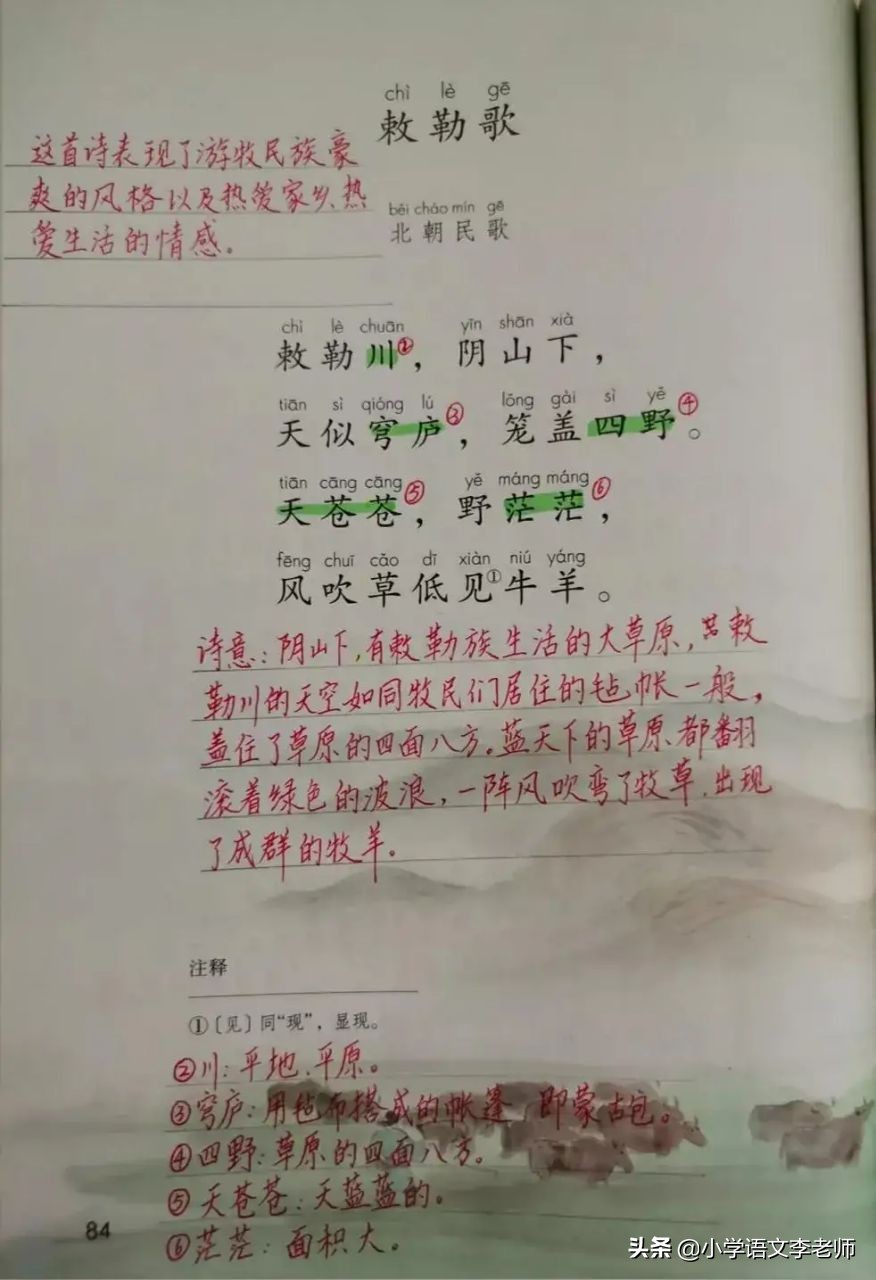 chì lè gē
敕勒歌
这首诗表现了游牧民族豪
爽的风格以及热爱家乡、热
爱生活的情感。
běi cháo mín gē
北朝民歌
chì lè chuān yīn shān xià
敕勒川②，阴山下，
tiān sì qióng lú lóng gài sì yě
天似穹庐③，笼盖四野④。
tiān cāng cāng yě máng máng
天苍苍⑤，野茫茫⑥，
fēng chuī cǎo dī xiàn niú yáng
风吹草低见①牛羊。
诗意：阴山下，有敕勒族生活的大草原，敕
勒川的天空如同牧民们居住的毡帐一般，
盖住了草原的四面八方。蓝天下的草原都翻
滚着绿色的波浪，一阵风吹弯了牧草，出现
了成群的牧羊。
注释
①〔见〕同“现”，显现。
②川：平地、平原。
③穹庐：用毡布搭成的帐篷，即蒙古包。
④四野：草原的四面八方。
⑤天苍苍：天蓝蓝的。
⑥茫茫：面积大。
84
头条 @小学语文李老师